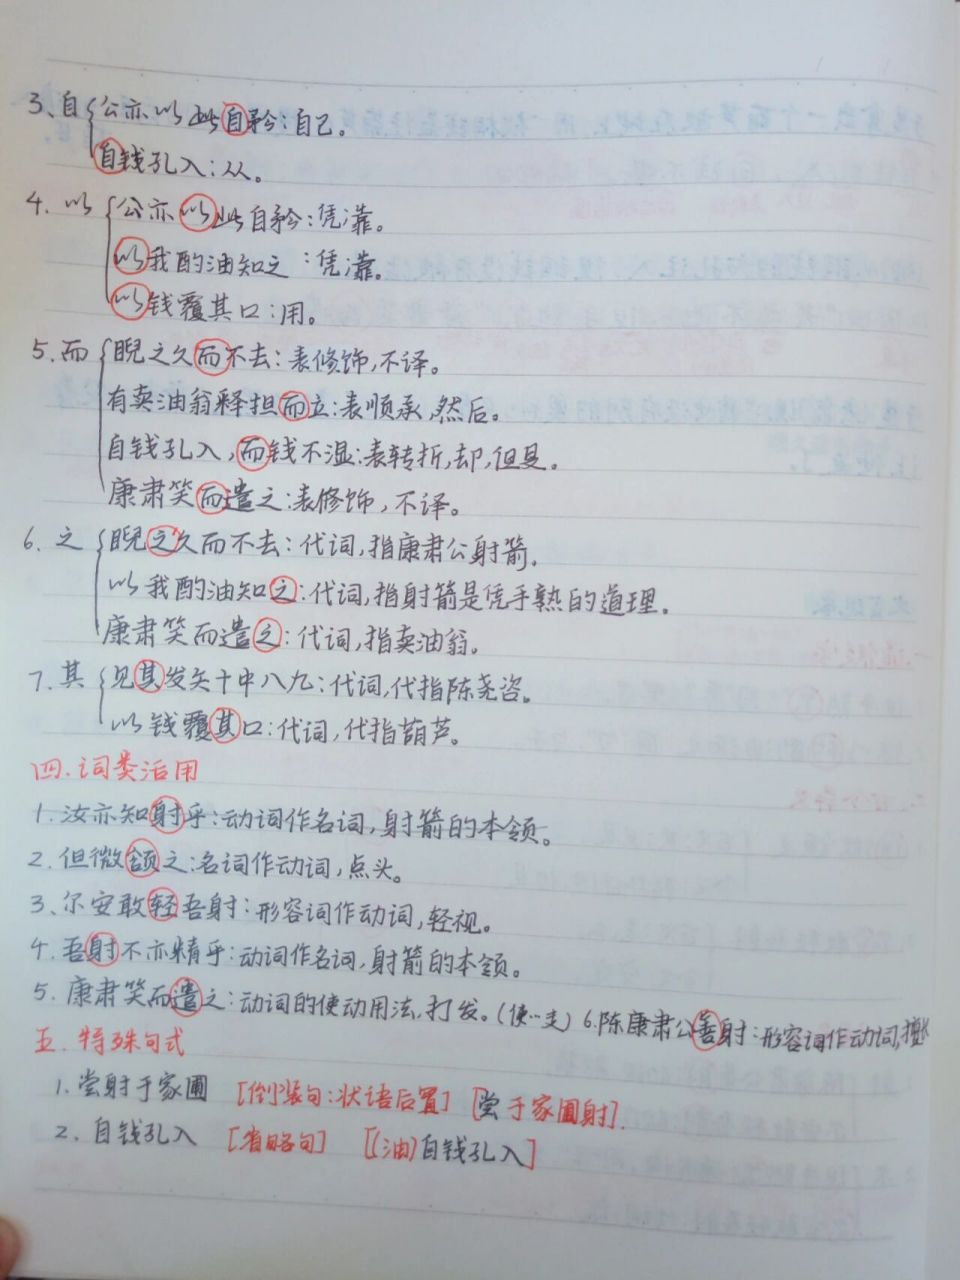 3、自{公亦以此自矜:自己。
自钱孔入:从。
4. 以{公亦以此自矜:凭靠。
以我酌油知之:凭靠。
以钱覆其口:用。
5. 而{睨之久而不去:表修饰,不译。
有卖油翁释担而立:表顺承,然后。
自钱孔入,而钱不湿:表转折,却,但是。
康肃笑而遣之:表修饰,不译。
6. 之{睨之久而不去:代词,指康肃公射箭。
以我酌油知之:代词,指射箭是凭手熟的道理。
康肃笑而遣之:代词,指卖油翁。
7. 其{见其发矢十中八九:代词,代指陈尧咨。
以钱覆其口:代词,代指葫芦。
四.词类活用
1. 汝亦知射乎:动词作名词,射箭的本领。
2. 但微颔之:名词作动词,点头。
3、尔安敢轻吾射:形容词作动词,轻视。
4. 吾射不亦精乎:动词作名词,射箭的本领。
5. 康肃笑而遣之:动词的使动用法,打发。(使…走) 6.陈康肃公善射:形容词作动词,擅长
五. 特殊句式
1. 尝射于家圃 [倒装句:状语后置] [尝于家圃射].
2. 自钱孔入 [省略句] [(油)自钱孔入]